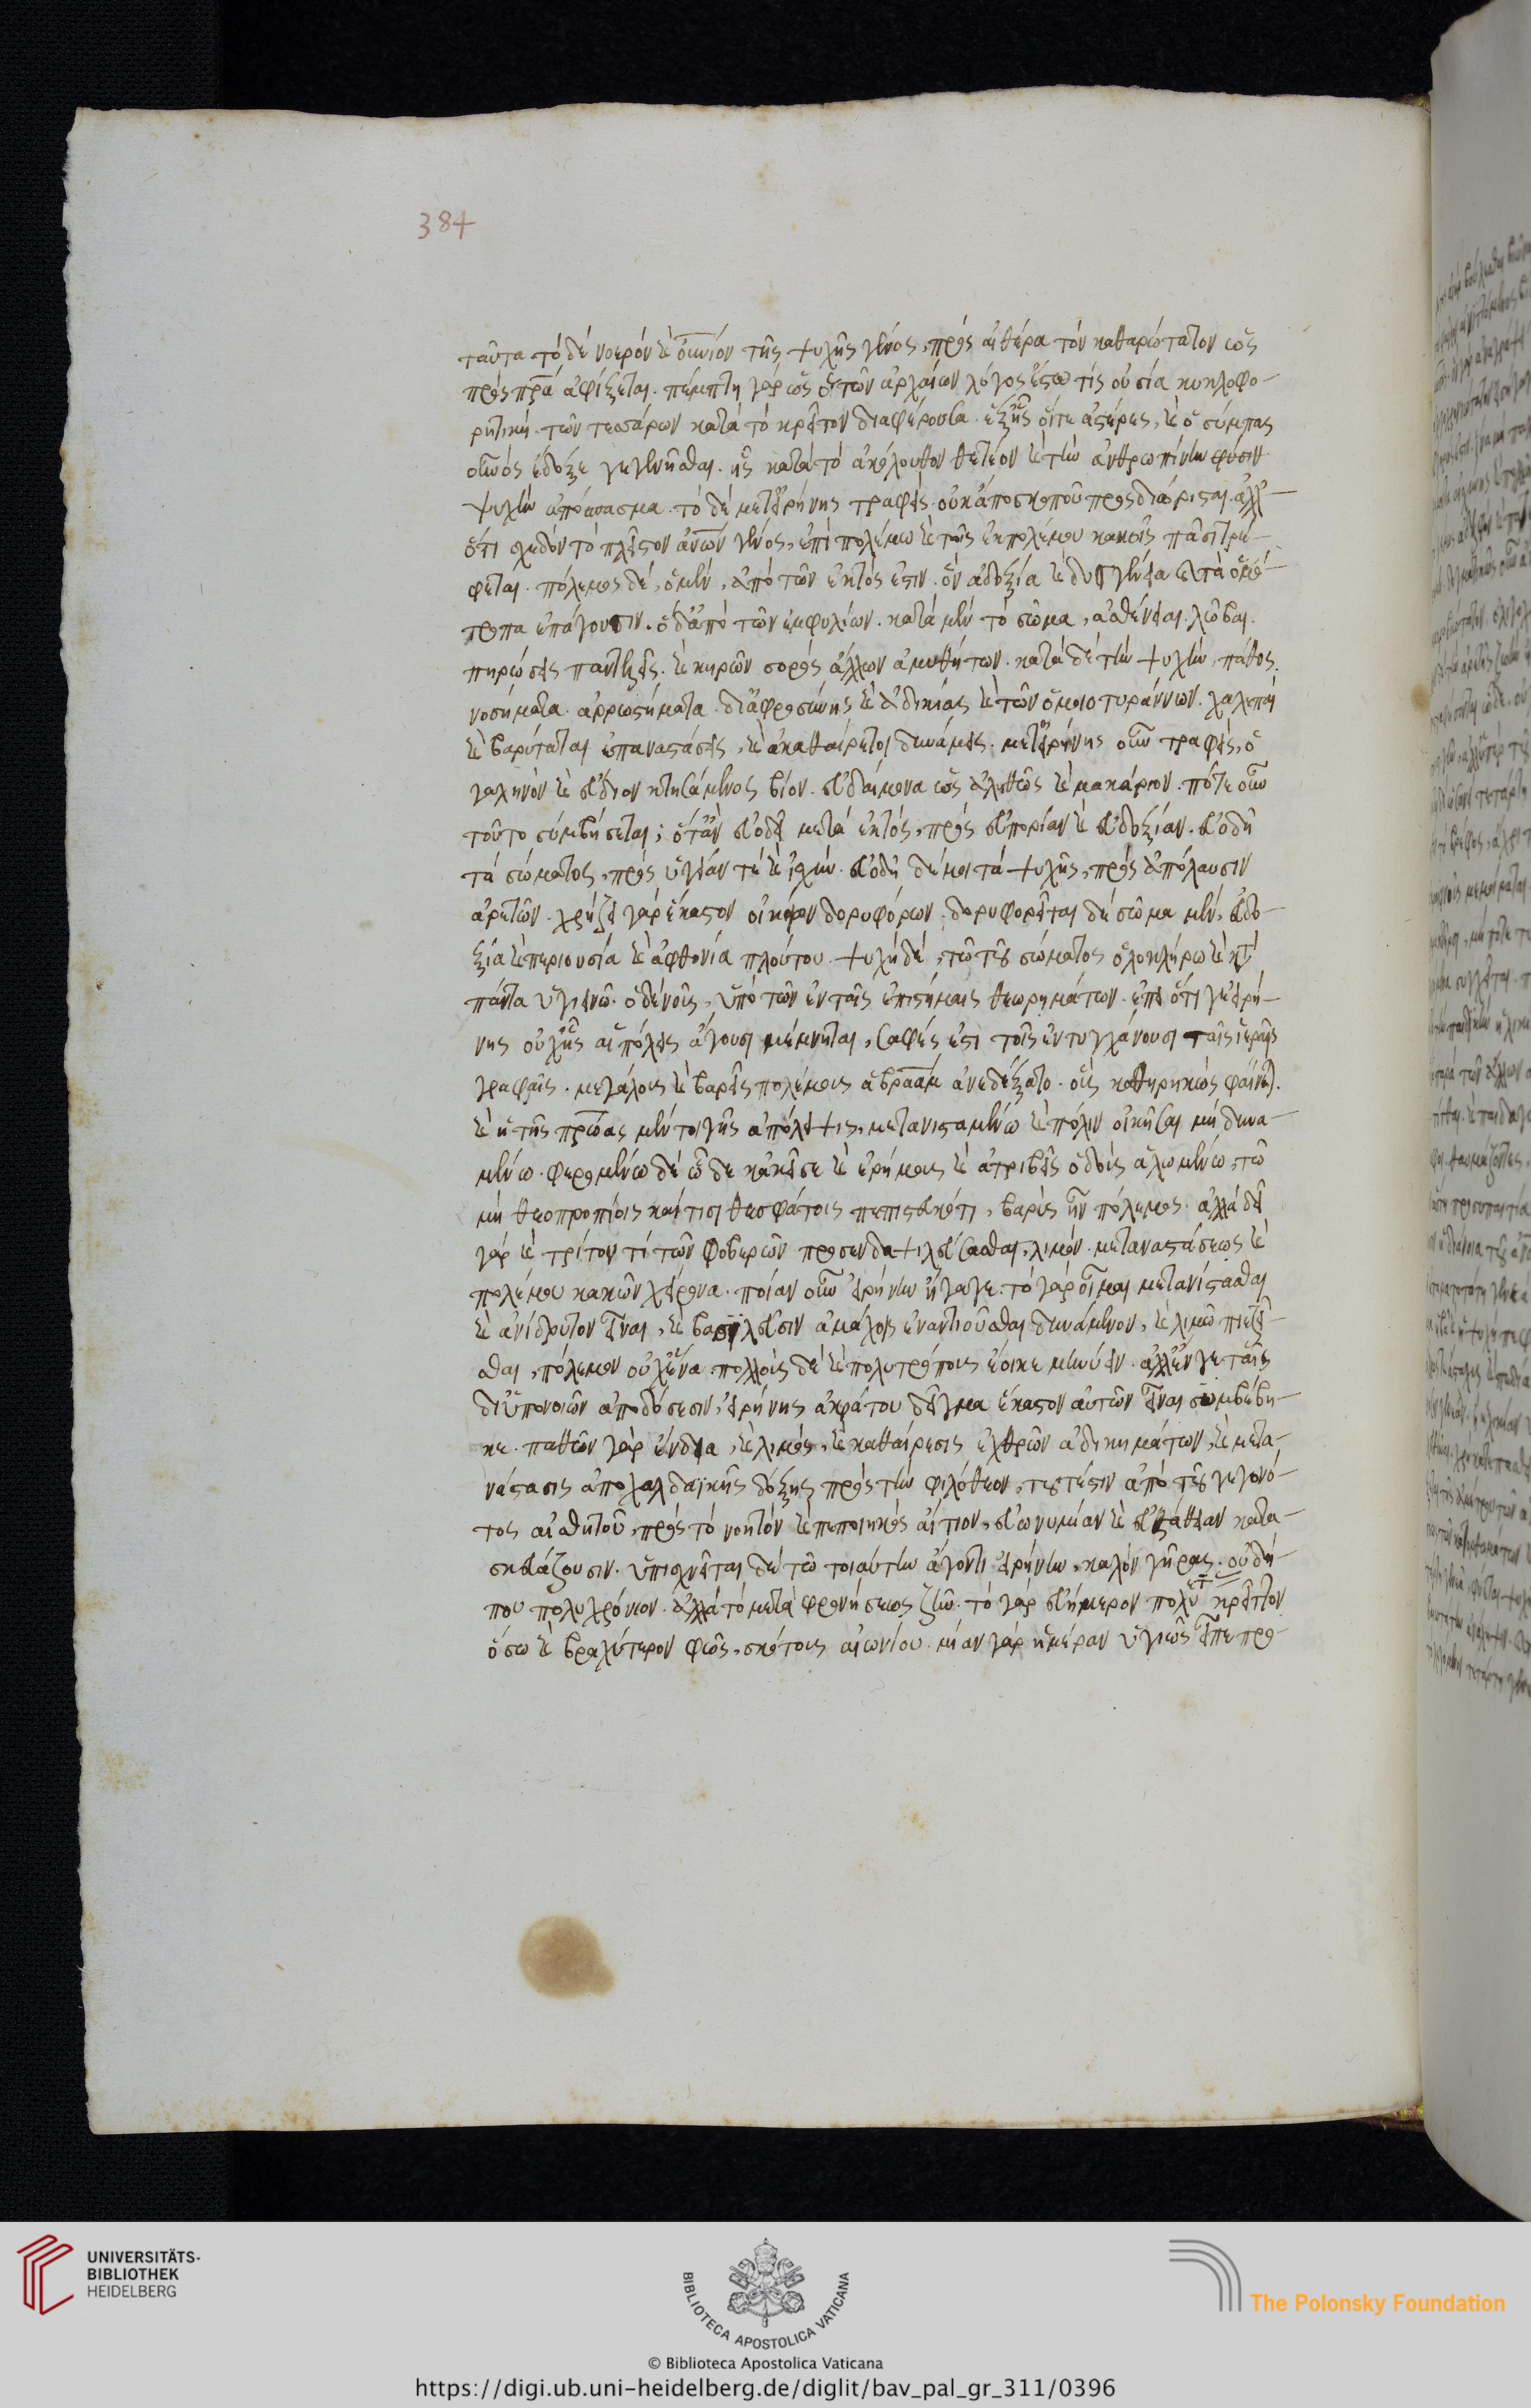 384
ταῦτα τὸ δὲ νοερόν καὶ οὐνιον τῆς ψυχῆς γένος, πρὸς αἰθέρα τὸν καθαρώτατον ὡς
πρὸς πρα ἀφίξεται. πέμπτη γάρ ὡς ὁ τῶν ἀρχαίων λόγος ἔστω τίς οὐσία κυκλοφο-
ρητική. τῶν τεσσάρων κατὰ τὸ κρεῖττον διαφέρουσα. ἐξῆς οἵτε ἀστέρες, καὶ ὁ σύμπας
οὐνὸς ἔδοξε γεγενῆσθαι. ἧς κατὰ τὸ ἀκόλουθον θετέον καὶ τὴν ἀνθρωπίνην φύσιν
ψυχὴν ἀπόσπασμα. τὸ δὲ μετεἰρήνης τραφείς. οὐκ ἀποσκοποῦ προσδιώρισται. ἀλλ-
ὅτι σχεδὸν τὸ πλεῖστον ἀνων γένος, ἐπὶ πολέμω καὶ τοῖς ἐκπολέμου κακοῖς πᾶσι τρέ-
φεται. πόλεμος δέ, ὁ μὲν, ἀπὸ τῶν ἐκτός ἐστιν. ὃν ἀδοξία καὶ δυσγένεια καὶ τὰ ὁμοιό-
τροπα ἐπάγουσιν. ὁ δἀπὸ τῶν ἐμφυλίων. κατὰ μὲν τὸ σῶμα, ἀσθένειαι. λῶβαι.
πηρώσεις παντελεῖς. καὶ κηρῶν σορὸς ἄλλων ἀμυθήτων. κατὰ δὲ τὴν ψυχὴν, πάθος.
νοσήματα. ἀρρωστήματα. διἀφροσύνης καὶ ἀδικίας καὶ τῶν ὁμοιοτυράννων. χαλεπαὶ
καὶ βαρύταται ἐπαναστάσεις, καὶ ἀκαθαίρετοι δυνάμεις. μετεἰρήνης οὖν τραφείς, ὁ
γαληνὸν καὶ εὔδιον κτησάμενος βίον. εὐδαίμονα ὡς ἀληθῶς καὶ μακάριον. πότε οὖν
τοῦτο συμβήσεται; ὅτἂν εὐοδῆ μετὰ ἐκτός, πρὸς εὐπορίαν καὶ εὐδοξίαν. εὐοδῆ
τὰ σώματος, πρὸς ὑγείαν τὲ καὶ ἰσχύν. εὐοδῆ δέ μοι τὰ ψυχῆς, πρὸς ἀπόλαυσιν
ἀρετῶν. χρήζει γὰρ ἕκαστον οἰκείων δορυφόρων. δορυφορεῖται δὲ σῶμα μὲν, εὐδο-
ξία καὶ περιουσία καὶ ἀφθονία πλούτου. ψυχὴ δὲ, τῶ τοῦ σώματος ὁλοκλήρω καὶ κτ
πάντα ὑγιεινῶ. ὁ δὲ νοῦς, ὑπὸ τῶν ἐν ταῖς ἐπιστήμαις θεωρημάτων. ἐπεὶ ὅτι γεἰρή-
νης οὐχῆς αἱ πόλεις ἄγουσι μέμνηται, σαφές ἐστι τοῖς ἐντυγχάνουσι ταῖς ἱεραῖς
γραφαῖς. μεγάλους καὶ βαρεῖς πολέμους ἀβραὰμ ἀνεδέξατο. οὓς καθῃρηκὼς φαίνεται.
καὶ ἡ τῆς πρώας μὲν τοι γῆς ἀπόλειψις, μετανισταμένω καὶ πόλιν οἰκῆσαι μὴ δυνα-
μένω. φερομένω δὲ ὧδε κἀκεῖσε καὶ ἐρήμοις καὶ ἀτριβεῖς ὁδοῖς ἀλωμένω, τῶ
μὴ θεοπροπίοις καί τισι θεσφάτοις πεπιστευκότι, βαρὺς ἦν πόλεμος. ἀλλὰ δεῖ
γὰρ καὶ τρίτον τὶ τῶν φοβερῶν προσενδαψιλεύσασθαι, λιμὸν. μεταναστάσεως καὶ
πολέμου κακῶν χείρονα. ποίαν οὖν εἰρήνην ἤγαγε. τὸ γὰρ οἶμαι μετανίστασθαι
καὶ ἀνίδρυτον εἶναι, καὶ βασιλεῦσιν ἀμάχοις ἐναντιοῦσθαι δυνάμενον, καὶ λιμῶ πιέζε-
σθαι, πόλεμον οὐχένα. πολλοὺς δὲ καὶ πολυτρόπους ἔοικε μηνύειν. ἀλλέν γε ταῖς
διὑπονοιῶν ἀποδόσεσιν, εἰρήνης ἀκράτου δεῖγμα ἕκαστον αὐτῶν εἶναι συμβέβη-
κε. παθῶν γὰρ ἔνδεια, καὶ λιμός, καὶ καθαίρεσις ἐχθρῶν ἀδικημάτων, καὶ μετα-
νάστασις ἀποχαλδαϊκῆς δόξης πρὸς τὴν φιλόθεον, τουτέστιν ἀπὸ τοῦ γεγονό-
τος αἰσθητοῦ, πρὸς τὸ νοητόν καὶ πεποιηκὸς αἴτιον, εὐωνυμίαν καὶ εὐστάθειαν κατα-
σκευάζουσιν. ὑπισχνεῖται δὲ τῶ τοιαύτην ἄγοντι εἰρήνην, καλὸν γῆρας. οὐδή-
που πολυχρόνιον. ἀλλὰ τὸ μετὰ φρονήσεως ζῆν. τὸ γὰρ εὐήμερον πολυετ κρεῖττον
ὅσω καὶ βραχύτερον φῶς, σκότους αἰωνίου. μίαν γὰρ ἡμέραν ὑγιῶς εἶπε προ-
UNIVERSITÄTS-
BIBLIOTHEK
HEIDELBERG
BIBLIOTECA APOSTOLICA VATICANA
The Polonsky Foundation
© Biblioteca Apostolica Vaticana
https://digi.ub.uni-heidelberg.de/diglit/bav_pal_gr_311/0396